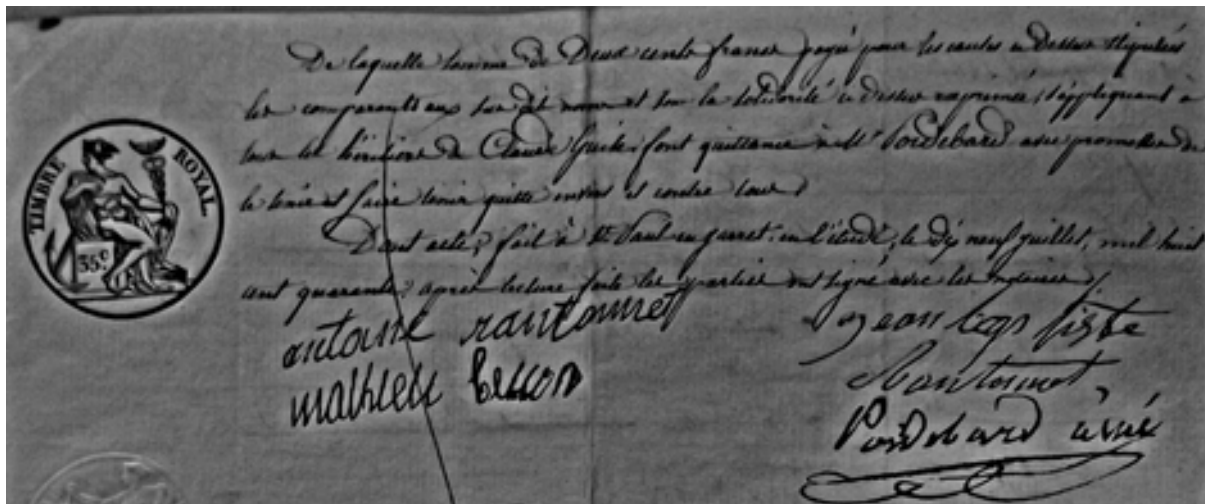 De laquelle somme de Deux cents francs payée pour les causes ci dessus stipulées
les comparants aux sus dit noms et sous la solidarité ci dessus exprimée, s'appliquant à
tous les héritiers de Claude font quittance à Mr Poidebard avec promesse de
le tenir et faire tenir quitte envers et contre tous.
Dont acte, fait à St Paul en Jarret en l'étude, le dix neuf juillet, mil huit
cent quarante, après lecture faite les parties ont signé avec les notaires,
TIMBRE ROYAL
35c
antoine rantonnet
mathieu besson
Jean baptiste
Rantonnet
Poidebard ainé